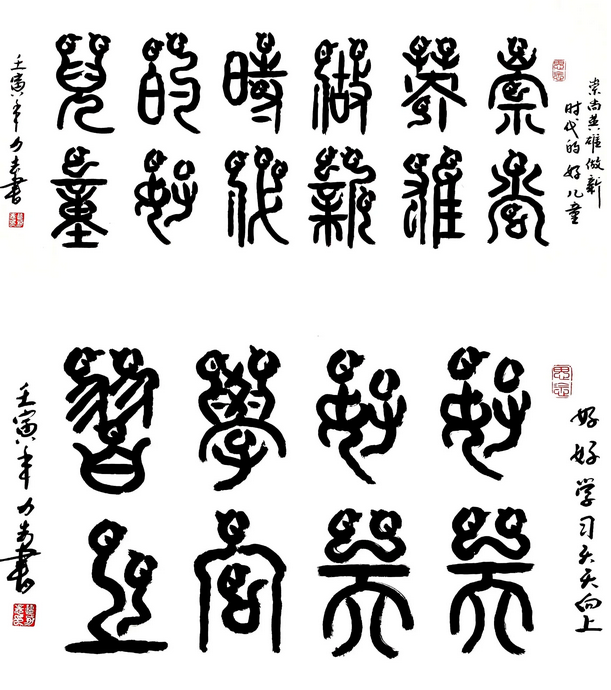 崇尚英雄做新
时代的好儿童
崇尚
英雄
做新
時代
的好
兒童
壬寅年力書
好好学习天天向上
好好學習
天天向上
壬寅年力書